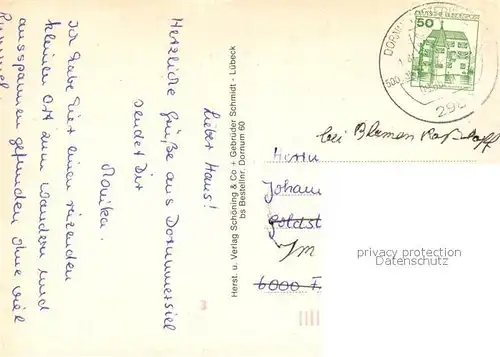 Lieber Hans!
Herzliche Grüße aus Dornumersiel
sendet Dir
Monika.
Ich habe hier einen reizenden
kleinen Ort zum Wandern und
ausspannen gefunden ohne viel
Rummel
Herst. u. Verlag Schöning & Co + Gebrüder Schmidt - Lübeck
bs Bestellnr. Dornum 60
50
bei Blumen
Herrn
Johann
Goldst
Im
6000 F
privacy protection
Datenschutz